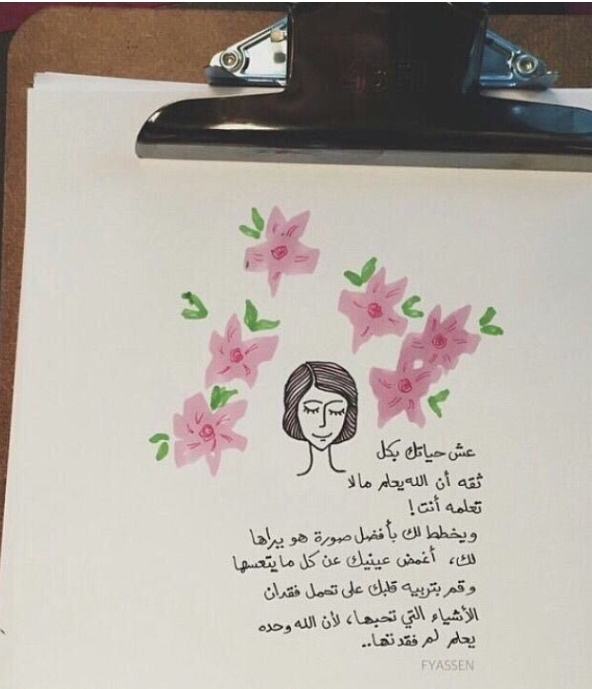 عش حياتك بكل
ثقه أن الله يعلم مالا
تعلمه أنت!
ويخطط لك بأفضل صورة هو يراها
لك، أغمض عينيك عن كل ما يتعسها
وقم بتربيه قلبك على تحمل فقدان
الأشياء التي تحبها، لأن الله وحده
يعلم لم فقدتها..
FYASSEN